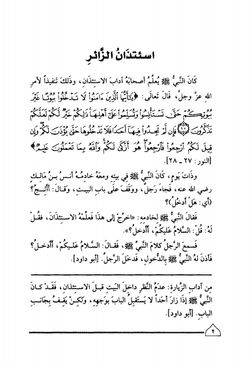 اسـتـئـذان الزَّائـر
كَانَ النَّبِيُّ ﷺ يُعَلِّمُ أَصْحَابَهُ آدَابَ الاسْتِئْذَانِ، وذَلكَ تَنفيذًا لأَمرِ
اللهِ عزَّ وجلَّ، قَالَ تَعَالَى: ﴿يَٰٓأَيُّهَا ٱلَّذِينَ ءَامَنُوا۟ لَا تَدْخُلُوا۟ بُيُوتًا غَيْرَ
بُيُوتِكُمْ حَتَّىٰ تَسْتَأْنِسُوا۟ وَتُسَلِّمُوا۟ عَلَىٰٓ أَهْلِهَا ذَٰلِكُمْ خَيْرٌ لَّكُمْ لَعَلَّكُمْ
تَذَكَّرُونَ فَإِن لَّمْ تَجِدُوا۟ فِيهَآ أَحَدًا فَلَا تَدْخُلُوهَا حَتَّىٰ يُؤْذَنَ لَكُمْ وَإِن
قِيلَ لَكُمُ ٱرْجِعُوا۟ فَٱرْجِعُوا۟ هُوَ أَزْكَىٰ لَكُمْ وَٱللَّهُ بِمَا تَعْمَلُونَ عَلِيمٌ﴾
[النور: ٢٧ - ٢٨].
وذَاتَ يَومٍ، كَانَ النَّبِيُّ ﷺ في بيتِهِ ومعَهُ خَادِمُهُ أنسُ بنُ مَالكٍ
رضي الله عنه، فَجاءَ رَجلٌ، ووقفَ علَى بابِ البيتِ، وقَالَ: أَأَلِجُ؟
(أي: هَلْ أَدخُلُ؟)
فقَالَ النَّبِيُّ ﷺ لخَادِمِهِ: «اخرُجْ إلى هَذَا فَعلِّمْهُ الاسـتئذانَ، فقُلْ
لَهُ: قُل: السَّلامُ عَلَيكُمْ، أَأَدخُلُ؟».
فَسمعَ الرَّجلُ كَلامَ النَّبِيِّ ﷺ، فَقَال: السَّلامُ عَلَيكُمْ، أَأَدخُلُ؟
فَأَذنَ لَهُ النَّبِيُّ ﷺ بِالدُّخُولِ، فَدخَلَ الرَّجلُ. [أبو داود].
من آدَابِ الزِّيارةِ: عَدَمُ النَّظرِ داخلَ البَيتِ قَبلَ الاسـتئذَانِ، فَقَـدْ كَـانَ
النَّبِيُّ ﷺ إِذَا زَارَ أَحَداً لاَ يَستَقْبِلُ البَابَ بوَجهِهِ، ولَكنْ يَقِفُ بِجَانبِ
البَابِ. [أبو داود].
٢